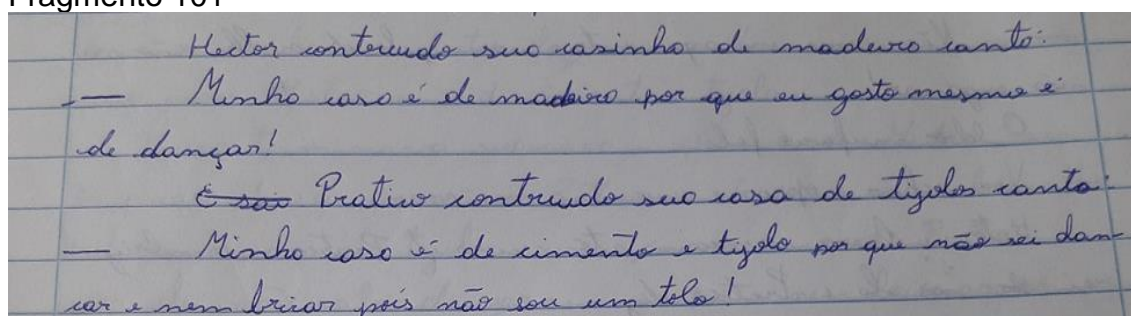 Fragmento 101
Hector contruudo sua casinha de madeira canta:
— Minha casa é de madeira por que eu gosto mesmo é
de dançar!
E sai Pratico contruudo sua casa de tijolos canta:
— Minha casa é de cimento e tijolo por que não sei dan-
car e nem bricar pois não sou um tolo!